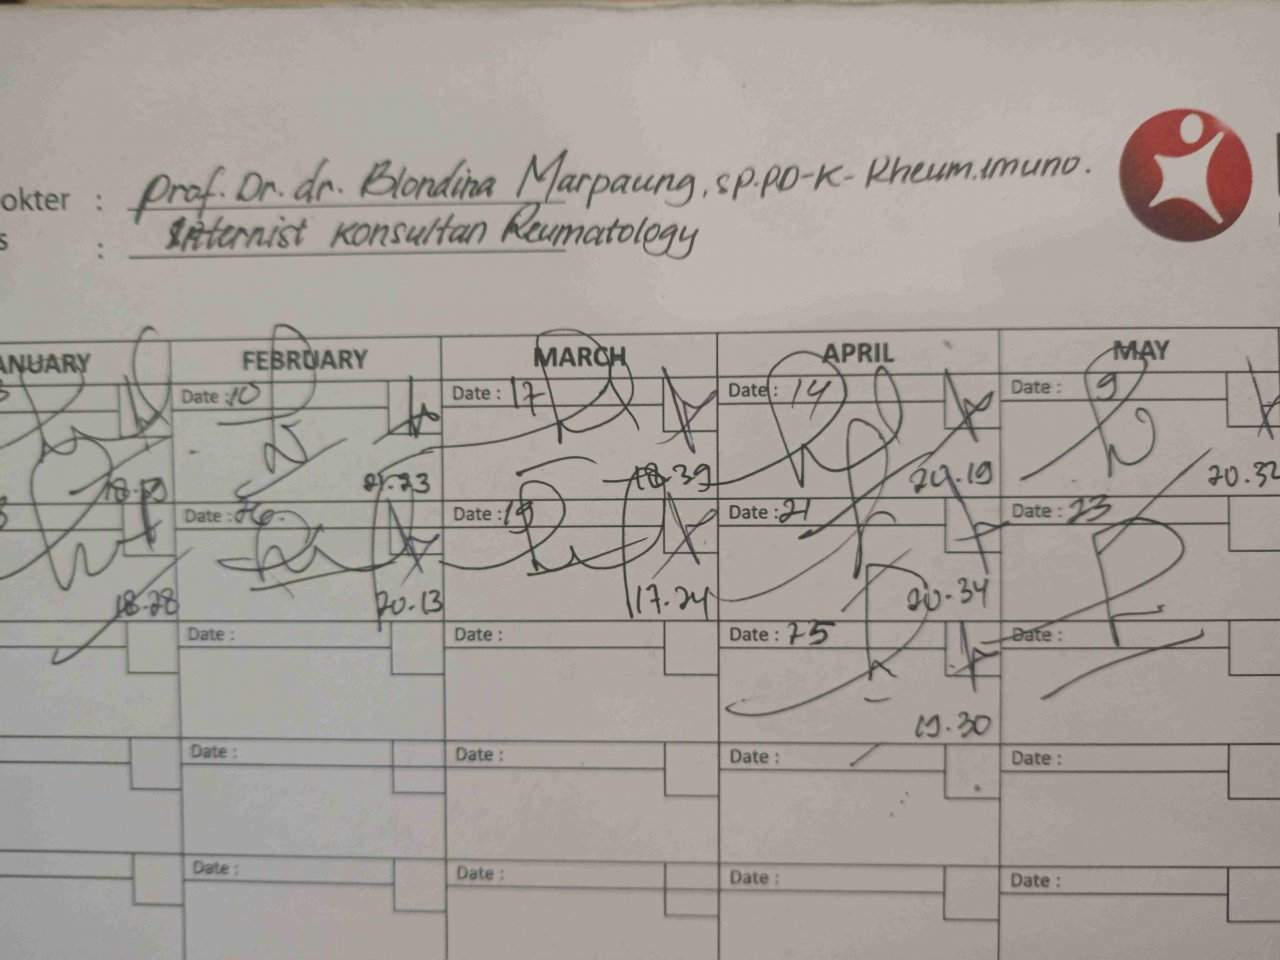 okter : Prof. Dr. dr. Blondina Marpaung, SP.PD-K-Rheum.imuno.
s : Internist Konsultan Reumatology
ANUARY FEBRUARY MARCH APRIL MAY
Date : 10 Date : 17 Date : 14 Date : 9
18.39 20.19 20.32
Date : 26. Date : 19 Date : 21 Date : 23
18.28 20.13 17.24 20.34
Date : Date : Date : 25 Date :
19.30
Date : Date : Date : Date :
Date : Date : Date : Date :